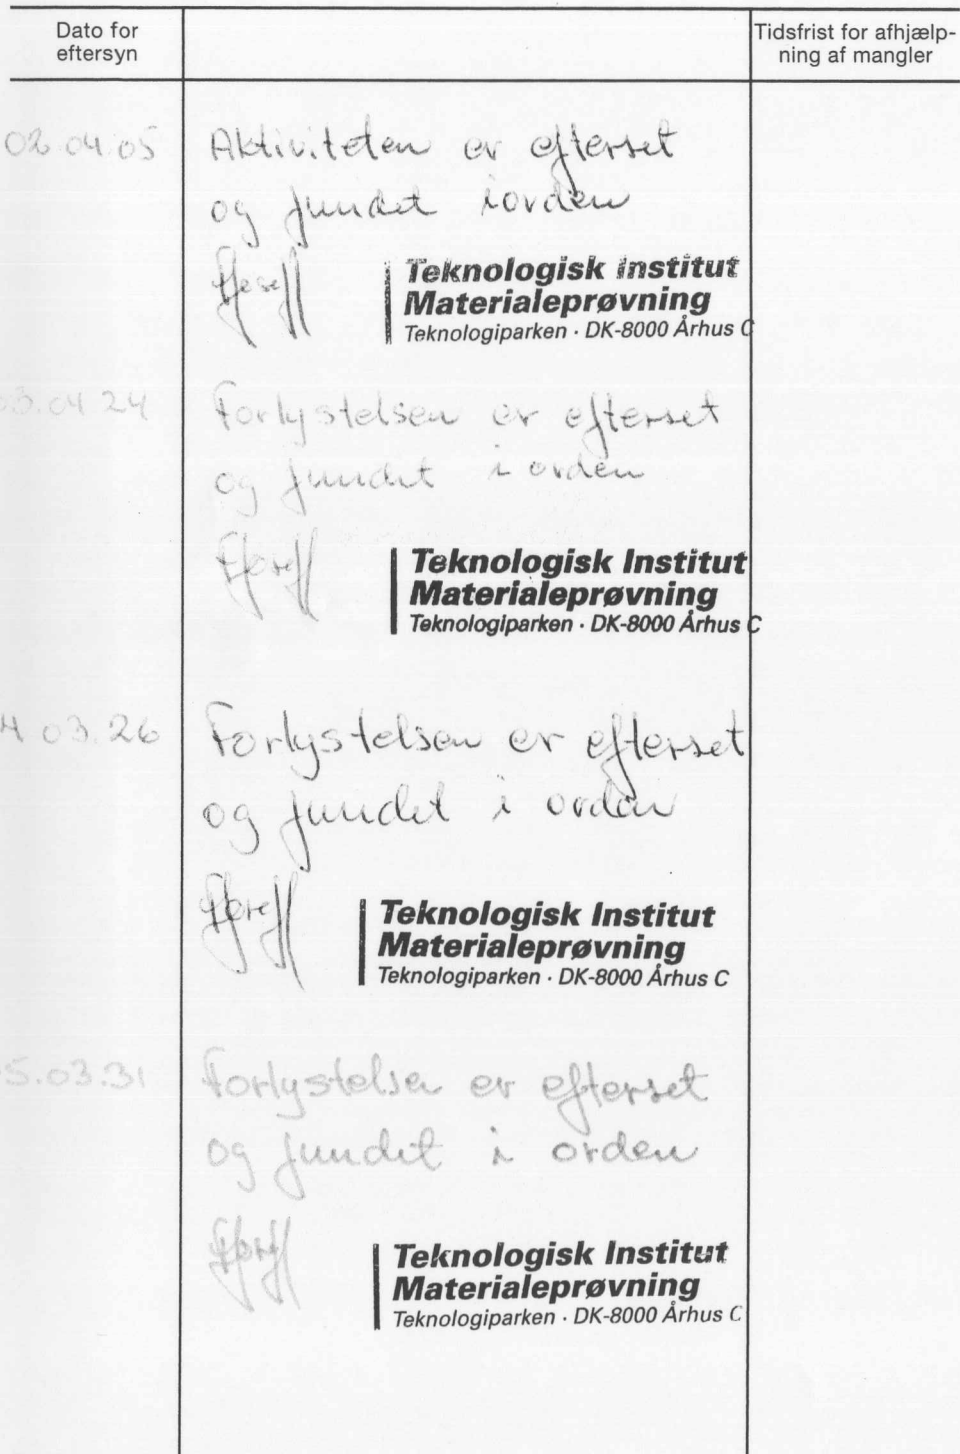 Dato for
eftersyn
Tidsfrist for afhjælp-
ning af mangler
02.04.05 Aktiviteten er efterset
og fundet iorden
Teknologisk Institut
Materialeprøvning
Teknologiparken · DK-8000 Århus C
03.04.24 Forlystelsen er efterset
og fundet i orden
Teknologisk Institut
Materialeprøvning
Teknologiparken · DK-8000 Århus C
4 03.26 Forlystelsen er efterset
og fundet i orden
Teknologisk Institut
Materialeprøvning
Teknologiparken · DK-8000 Århus C
5.03.31 Forlystelsen er efterset
og fundet i orden
Teknologisk Institut
Materialeprøvning
Teknologiparken · DK-8000 Århus C